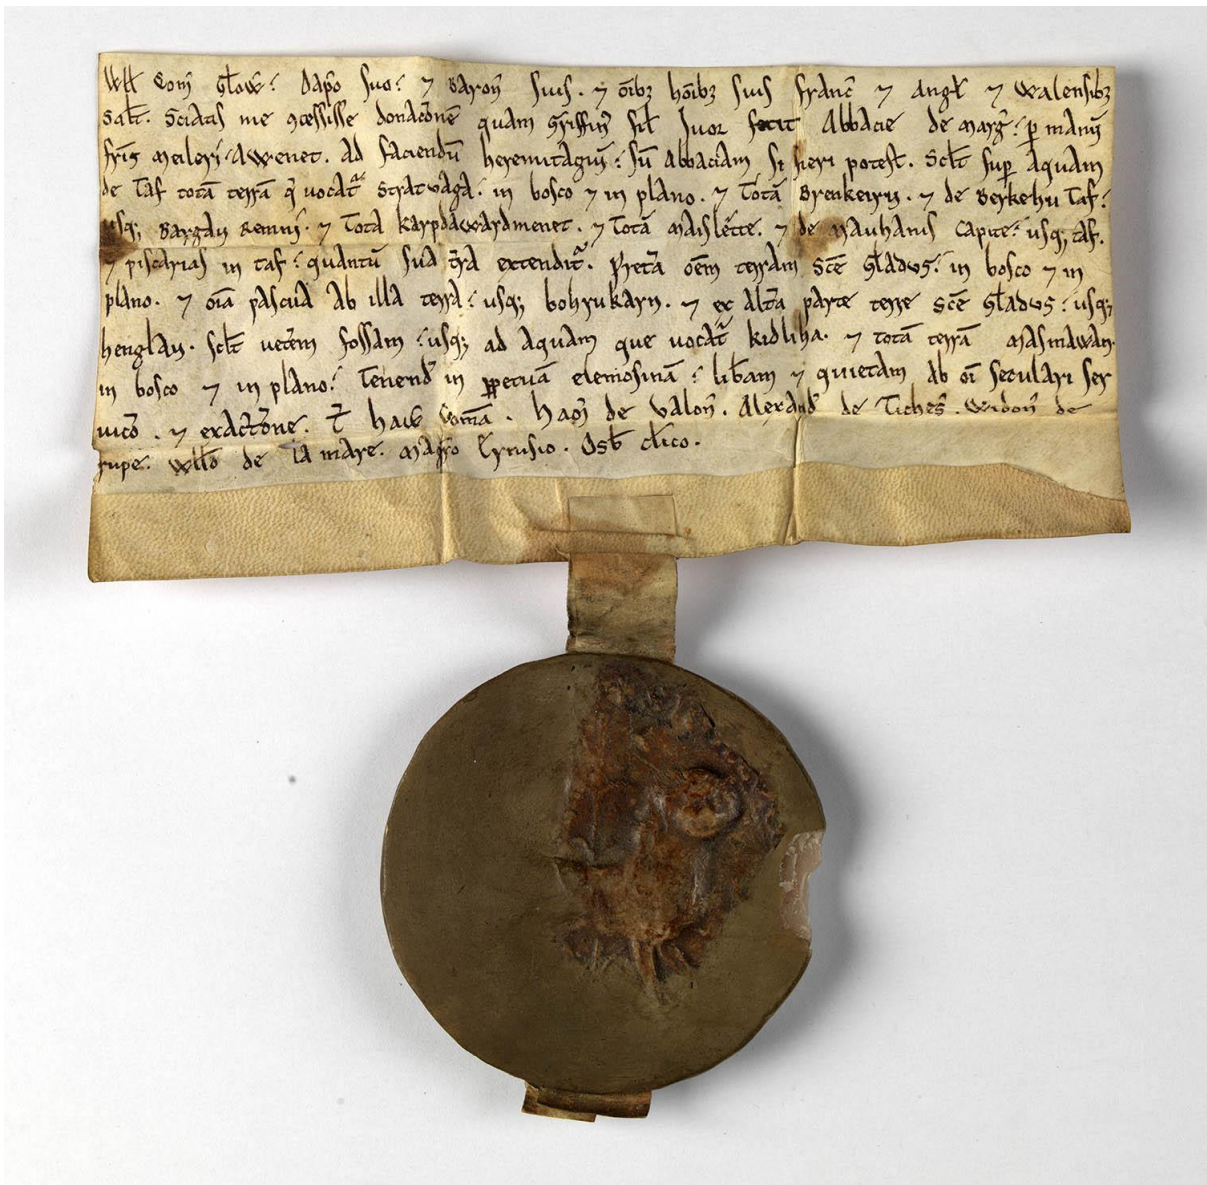 Witt Com̄ Gloẃ: Dap̄o suo: ⁊ Baron̄ suis. ⁊ om̄ibꝫ hōibꝫ suis franc̄ ⁊ Angł ⁊ Walensibꝫ
Sal̄t. Sciatis me ꝯcessisse donac̄onē quam Griffin̄ fil̄ Iuor fecit Abbacie de Marḡ: ꝑ manū
fr̄is Meileri: Awenet. ad faciendū heremitagiū: fū Abbaciam si fieri potest. Scl̄t sup̄ Aquam
de Taf totā terrā q̄ vocat᷑ Stratvaga: in bosco ⁊ in plano. ⁊ Totā Brenkeirū. ⁊ de Berkehu Taf:
usqꝫ Bargau Remni. ⁊ Tota karpdawardmenet. ⁊ Totā Maislette. ⁊ de Mauhanis capite: usqꝫ taf.
⁊ piscarias in taf: quantū sua tr̄a extendit᷑. Pret̄ea om̄em terram Sc̄e Gladus: in bosco ⁊ in
plano. ⁊ om̄ia pascua ab illa terra: usqꝫ bohrukarn. ⁊ ex alt̄a parte terre Sc̄e Gladus: usqꝫ
henglau. scl̄t uet̄em fossam: usqꝫ ad aquam que uocat᷑ kidliha. ⁊ totā terrā masmawan.
in bosco ⁊ in plano: Tenend̄ in ꝑpetuā elemosinā: lib̄am ⁊ quietam ab om̄i seculari ser
uico. ⁊ exactione. T̄ haw̄ Com̄a. Haḡ de Valon̄. Alexand̄ de Tiches̄. Widon̄ de
rupe. Wll̄o de la mare. Magr̄o Cyrusio. Osb̄ cl̄ico.